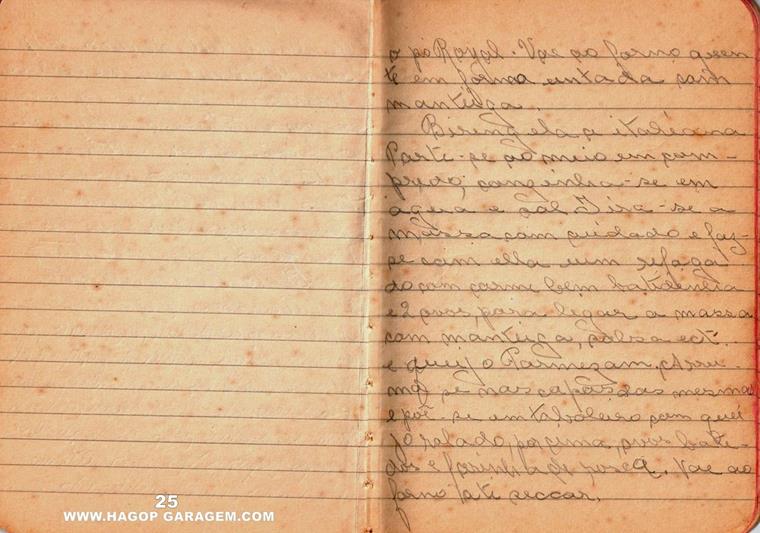 o pó Royal. Vae ao forno quen
te em forma untada com
mantiga.
Beringela a italiana
Parte-se ao meio em com-
prido, cozinha-se em
agua e sal. Tira-se a
massa com cuidado e faz-
se com ella um refoga
do com carne bem batidinha
e 2 ovos para legar a massa
com mantiga, salsa ect.
e queijo Parmezam. Arru-
ma se nas capas das mesmas
e põe-se em taboleiro com quei
jo ralado por cima, ovos bati-
dos e farinha de rosca. Vae ao
forno até seccar.
25
WWW.HAGOP GARAGEM.COM